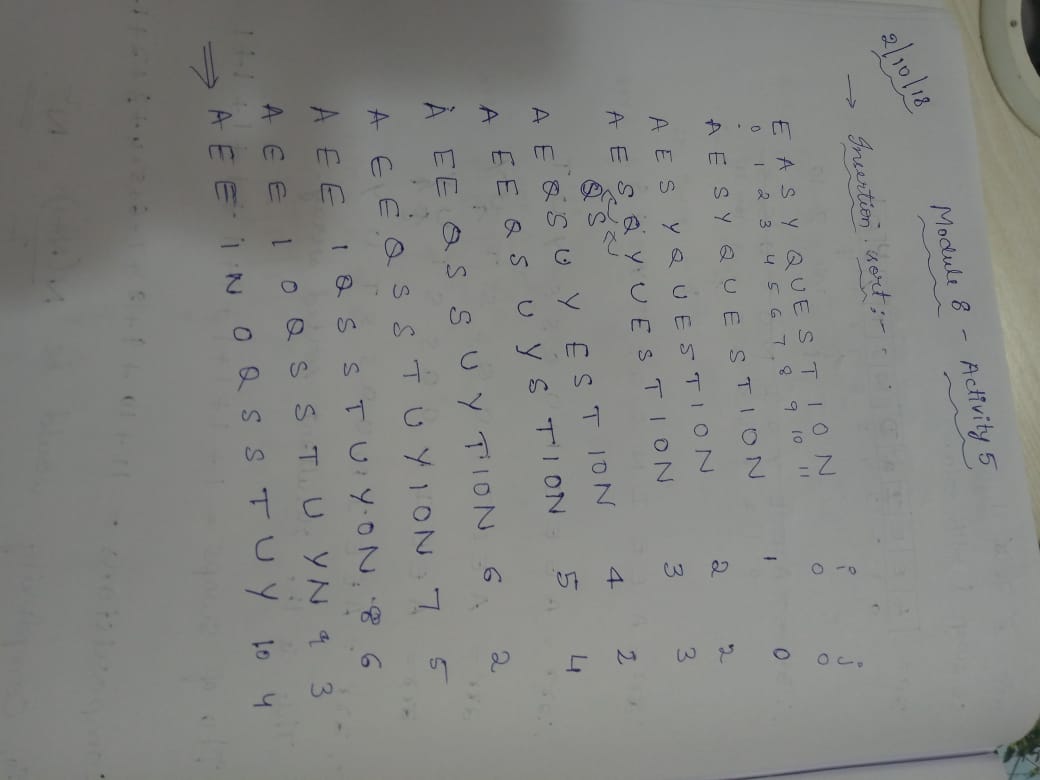 2/10/18
Module 8 - Activity 5
→ Insertion sort :-
i j
E A S Y Q U E S T I O N 0 0
0 1 2 3 4 5 6 7 8 9 10 11
A E S Y Q U E S T I O N 1 0
A E S Y Q U E S T I O N 2 2
A E S Q Y U E S T I O N 3 3
Q S
A E Q S U Y E S T I O N 4 2
A E E Q S U Y S T I O N 5 4
A E E Q S S U Y T I O N 6 2
A E E Q S S T U Y I O N 7 5
A E E I Q S S T U Y O N 8 6
A E E I O Q S S T U Y N 9 3
⇒ A E E i N O Q S S T U Y 10 4